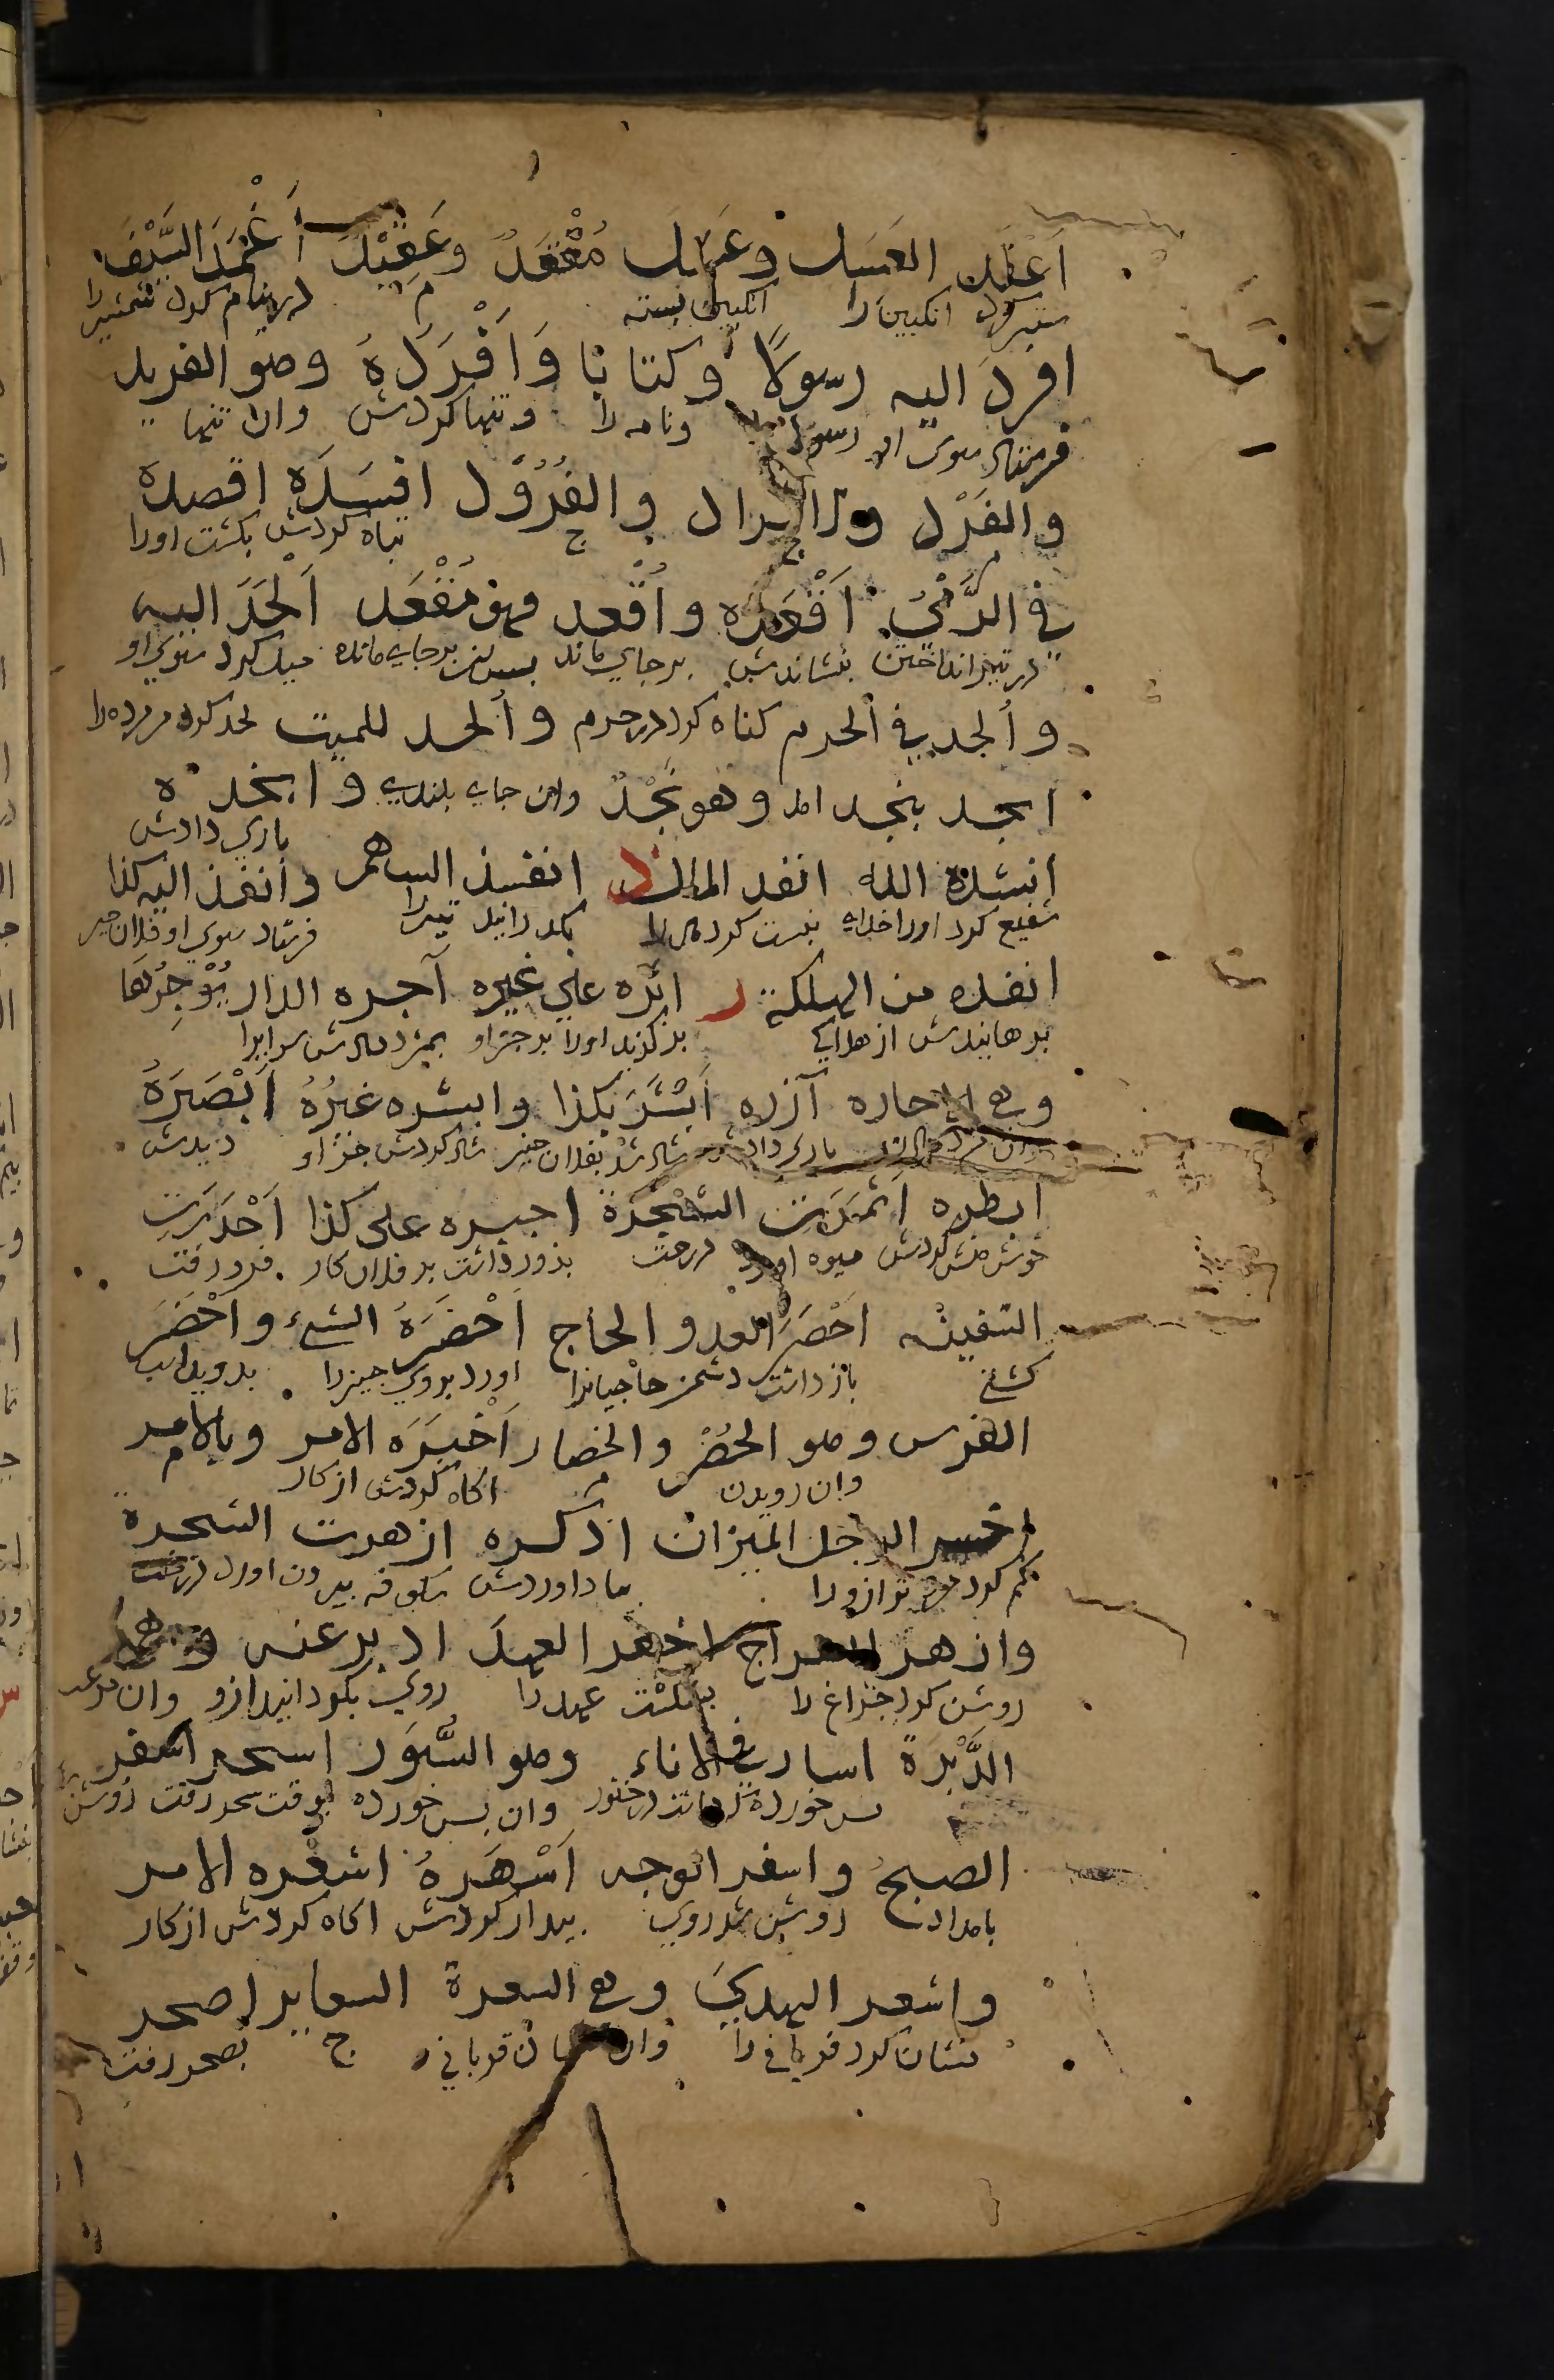 أعقد العسل وعسل معقد وعقيد أغمد السيف
ستبر كرد انكبين را انكبين بسته م در نيام كرد شمشيررا
افرد اليه رسولا وكتابا وأفرده وهو الفريد
فرستاد سوى او رسول ونامه را وتنها كردش وان تنها
والفرد والفراد والفرود افسده اقصده
ج ج تباه كردش بكشت اورا
في الرمي أقعده وأقعد فهو مقعد ألحد اليه
در تير انداختن بنشاندش برجاي ماند برجاي مانده ميل كرد سوي او
وألحد في الحرم كناه كرد در حرم وألحد للميت لحد كرد مر مرده را
انجد بنجد امد وهو نجد وان جاى بلندى وانجده
ياري دادش
انشده الله انفد المال ذ انفذ السهم وأنفذ اليه كذا
شفيع كرد اورا خداى نيست كرد مال را بكذرانيد تيررا فرستاد سوي او فلان چيز
انقذه من الهلكة ر اثره على غيره آجره الدار يؤجرها
برهانيدش از هلاكى بركزيد اورا بر جز او بمزد دادش سرايرا
وهي الاجاره آزره أبشر بكذا وابشره غيره أبصره
ياري دادش شاد شد بفلان چيز شاد كردش جز او ديدش
ابطره أثمرت الشجرة اجبره على كذا أحدرت
خوش منش كردش ميوه اورد درخت بزور داشت بر فلان كار فرو رفت
السفينة أحصر العدو الحاج أحضره الشيء وأحضر
كشتى باز داشت دشمن حاجيانرا اورد بروي چيزرا بدويد اسب
الفرس وهو الحضر والحضار أخبره الامر وبالامر
وان دويدن م اكاه كردش از كار م
اخسر الرجل الميزان اذكره ازهرت الشجرة
كم كرد مرد ترازورا ياد اوردش شكوفه بيرون اورد درخت
وازهر السراج اخفر العهد ادبر عنه
روشن كرد چراغ را بشكست عهد را روي بكردانيد ازو وان
الدبرة اسار في الاناء وهو السؤر اسحر اسفر
بس خورده ماند در خنور وان بس خورده بوقت سحر رفت روشن شد
الصبح واسفر الوجه أسهره اشعره الامر
بامداد روشن شد روي بيدار كردش اكاه كردش از كار
واشعر الهدي وهي الشعرة الشعاير اصحر
نشان كرد قرباني را وان نشان قرباني ج بصحرا رفت